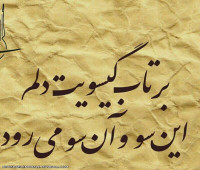 بر تاب گیسویت دلم
این سو و آن سو می رود